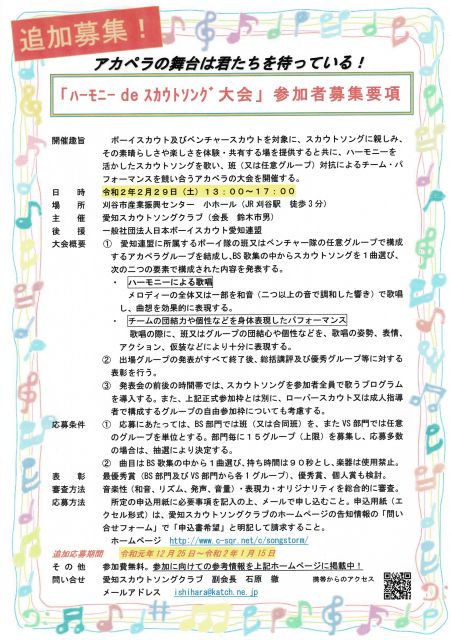 追加募集！
アカペラの舞台は君たちを待っている！
「ﾊｰﾓﾆｰ de ｽｶｳﾄｿﾝｸﾞ大会」参加者募集要項
開催趣旨　ボーイスカウト及びベンチャースカウトを対象に、スカウトソングに親しみ、
その素晴らしさや楽しさを体験・共有する場を提供すると共に、ハーモニーを
活かしたスカウトソングを歌い、班（又は任意グループ）対抗によるチーム・パ
フォーマンスを競い合うアカペラの大会を開催する。
日　時　令和２年２月２９日（土）１３：００～１７：００
場　所　刈谷市産業振興センター　小ホール（JR刈谷駅　徒歩３分）
主　催　愛知スカウトソングクラブ（会長　鈴木市男）
後　援　一般社団法人日本ボーイスカウト愛知連盟
大会概要　①　愛知連盟に所属するボーイ隊の班又はベンチャー隊の任意グループで構成
するアカペラグループを結成し、BS歌集の中からスカウトソングを１曲選び、
次の二つの要素で構成された内容を発表する。
・ハーモニーによる歌唱
メロディーの全体又は一部を和音（二つ以上の音で調和した響き）で歌唱
し、曲想を効果的に表現する。
・チームの団結力や個性などを身体表現したパフォーマンス
歌唱の際に、班又はグループの団結心や個性などを、歌唱の姿勢、表情、
アクション、仮装などにより十分に表現する。
②　出場グループの発表がすべて終了後、総括講評及び優秀グループ等に対する
表彰を行う。
③　発表会の前後の時間帯では、スカウトソングを参加者全員で歌うプログラム
を導入する。また、上記正式参加枠とは別に、ローバースカウト又は成人指導
者で構成するグループの自由参加枠についても考慮する。
応募条件　①　応募にあたっては、BS部門では班（又は合同班）を、またVS部門では任意
のグループを単位とする。部門毎に１５グループ（上限）を募集し、応募多数
の場合は、抽選により決定する。
②　曲目はBS歌集の中から１曲選び、持ち時間は９０秒とし、楽器は使用禁止。
表　彰　最優秀賞（BS部門及びVS部門から各１グループ）、優秀賞、個人賞も検討。
審査方法　音楽性（和音、リズム、発声、音量）・表現力・オリジナリティを総合的に審査。
応募方法　所定の申込用紙に必要事項を記入の上、メールで申し込むこと。申込用紙（エ
クセル形式）は、愛知スカウトソングクラブのホームページの告知情報の「問い
合せフォーム」で「申込書希望」と明記して請求すること。
ホームページ　http://www.c-sqr.net/c/songstorm/
追加応募期間　令和元年１２月２５日～令和２年１月１５日
そ の 他　参加費無料。参加に向けての参考情報を上記ホームページに掲載中！
問い合せ　愛知スカウトソングクラブ　副会長　石原　徹　携帯からのアクセス
メールアドレス　ishihara@katch.ne.jp